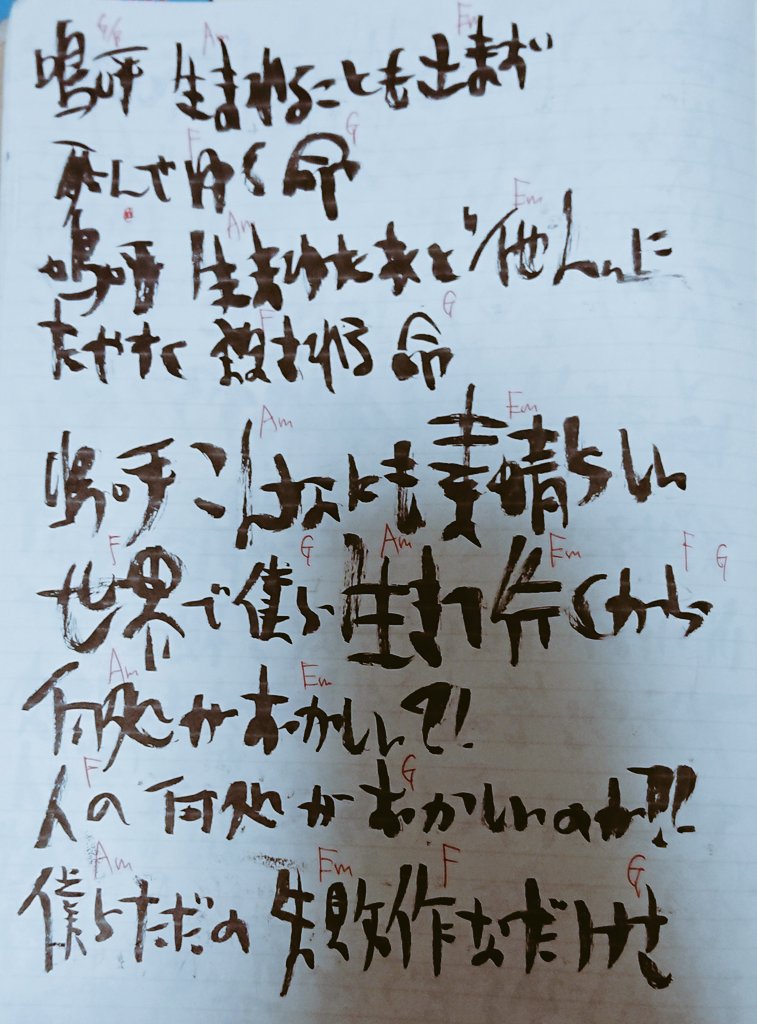 G G Am Em
嗚呼 生まれることも出来ず
F G
死んでゆく命
Am Em
嗚呼 生まれた 他人に
F G
たやすく 殺される 命
Am Em
嗚呼 こんなにも素晴らしい
F G Am Em F G
世界で僕ら 生まれ行くから
Am Em
何処がおかしいって!
F G
人の 何処がおかしいのか!!
Am Em F G
僕らただの 失敗作なだけさ